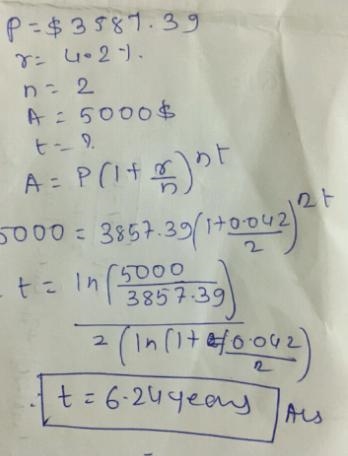 P = $ 3587.39
r = 4.2 %.
n = 2
A = 5000$
t = ?
A = P(1+ r/n)^nt
5000 = 3857.39(1+0.042/2)^2t
t = ln(5000/3857.39)/2(ln(1+0.042/2)
∴ t = 6.24 years Ans